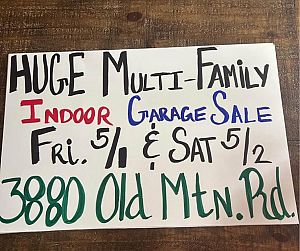 HUGE MULTI-FAMILY
INDOOR GARAGE SALE
FRI. 5/1 & SAT 5/2
3880 Old Mtn. Rd.